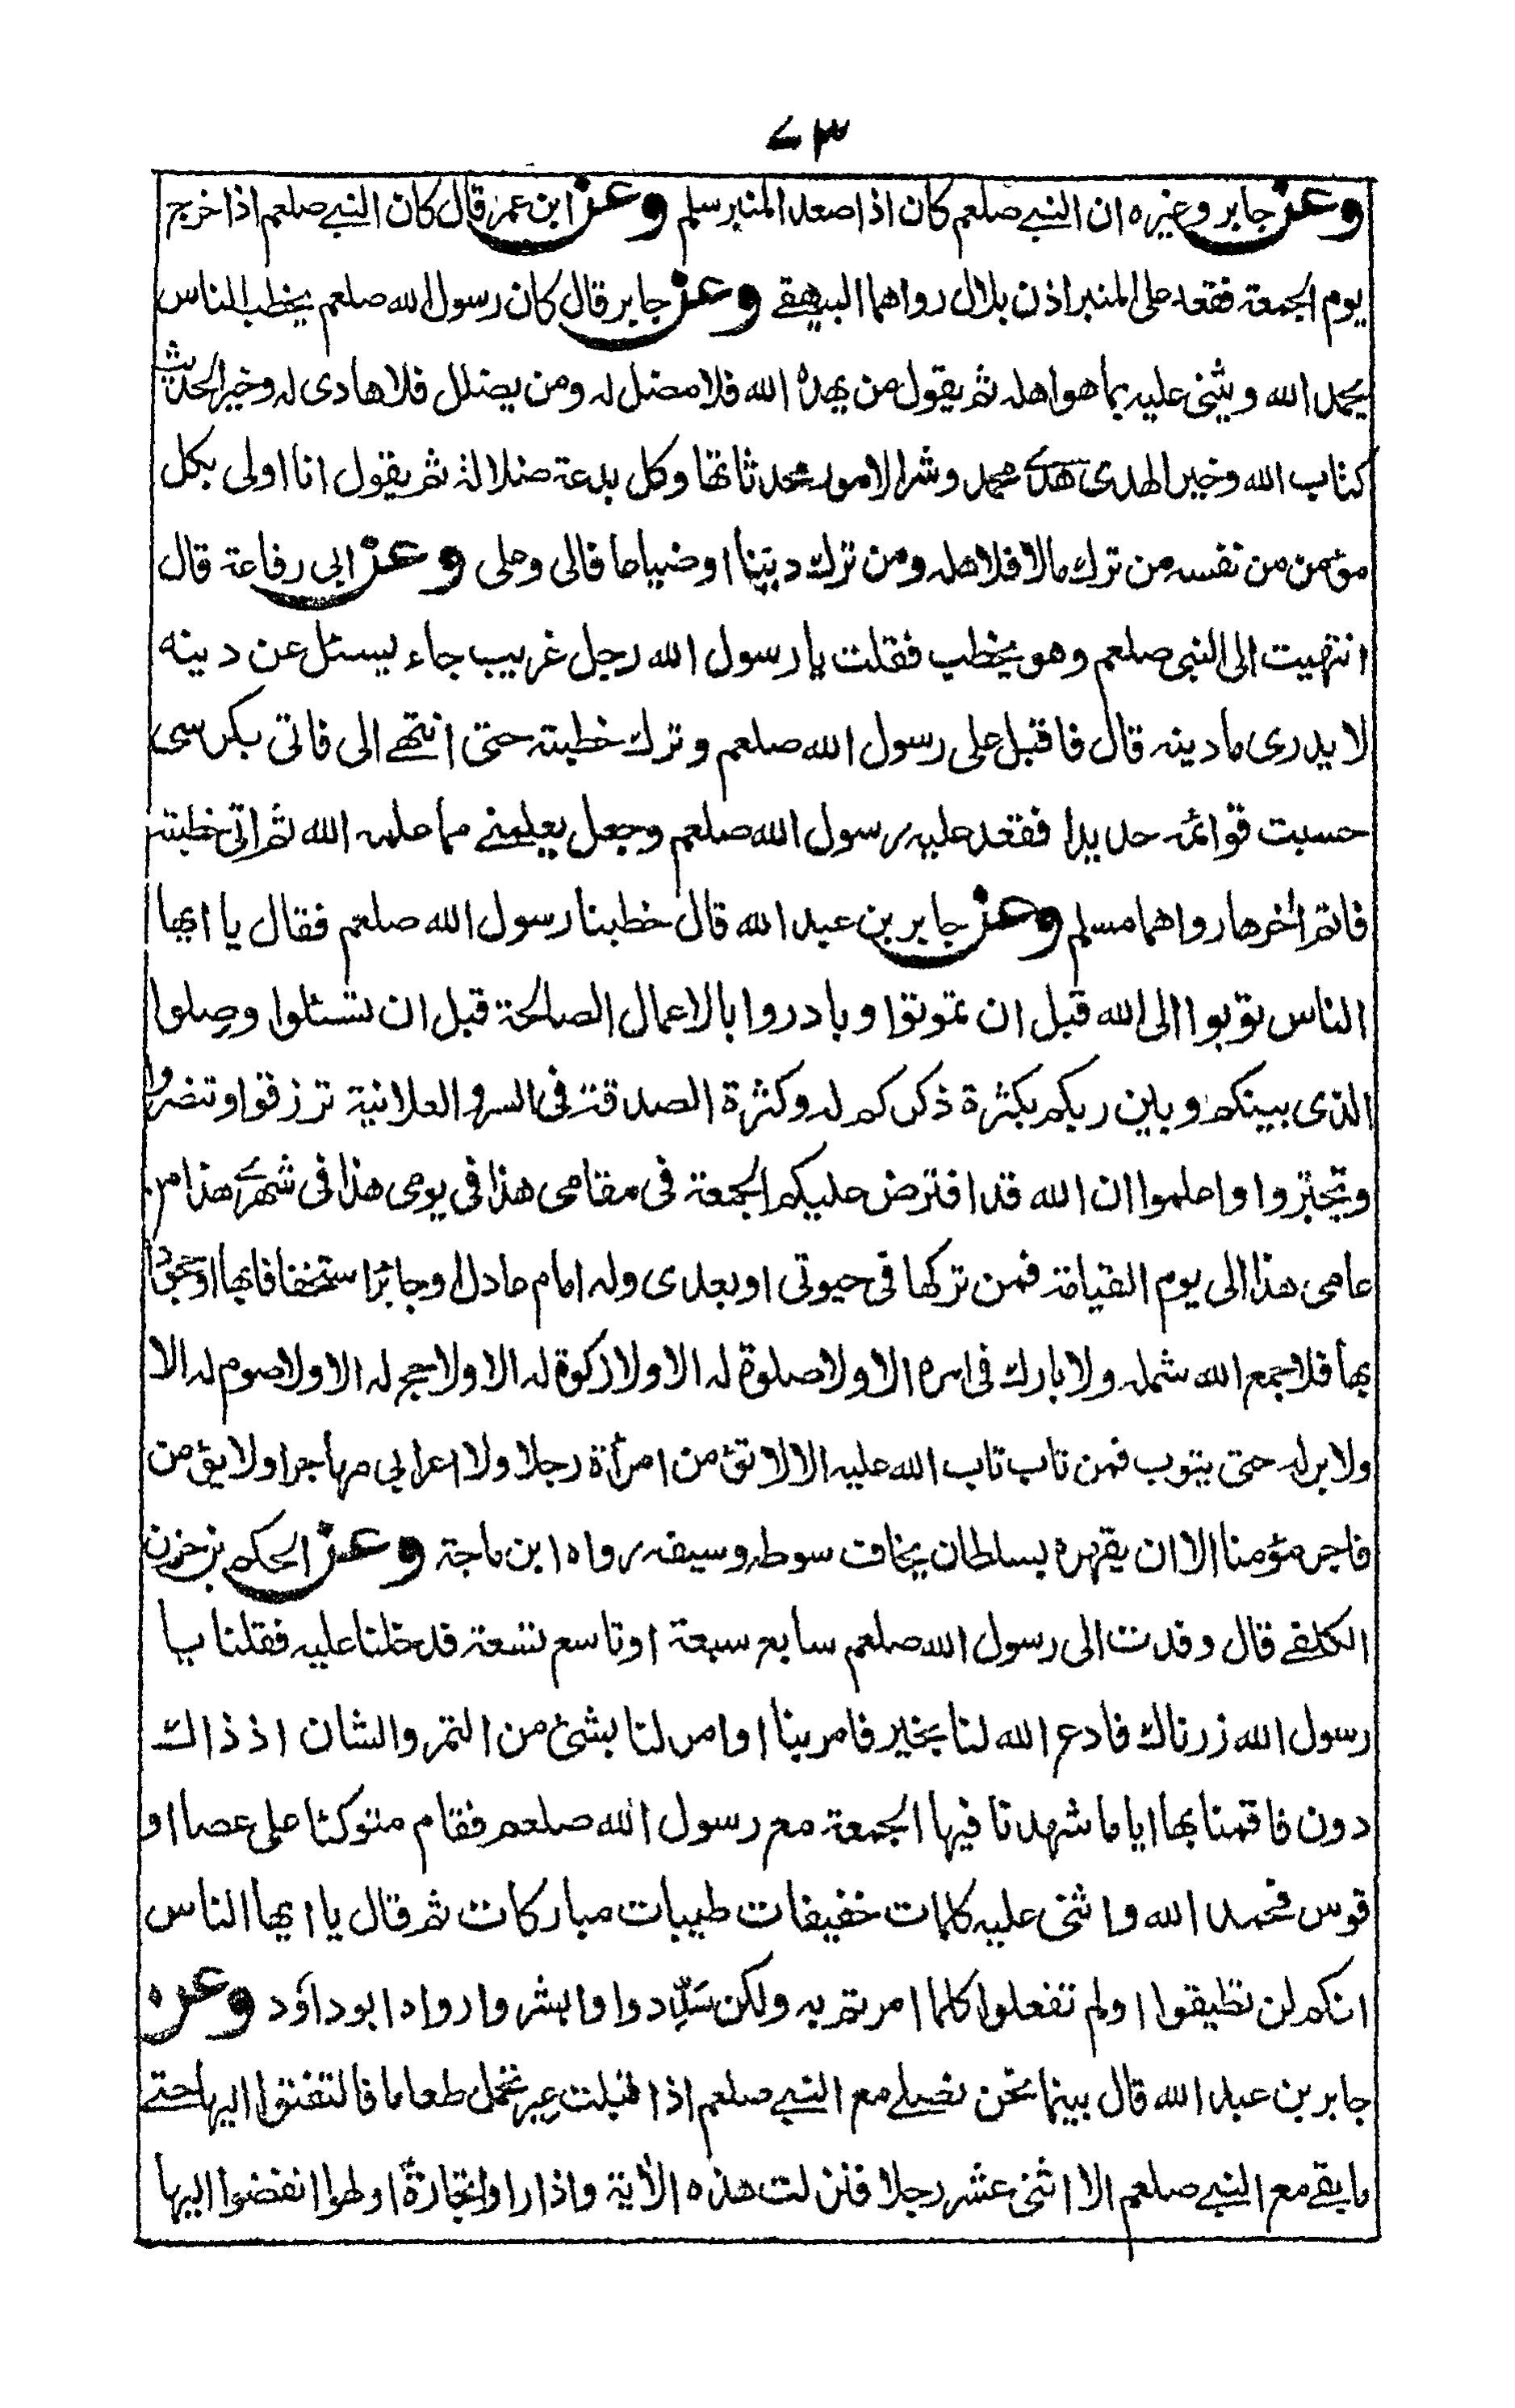 ٧٣
وعن جابر وغيره ان النبے صلعم كان اذا صعد المنبر سلم وعن ابن عمر قال كان النبے صلعم اذا خرج
يوم الجمعة فقعد على المنبر اذن بلال رواهما البيهقے وعن جابر قال كان رسول الله صلعم يخطب الناس
يحمد الله ويثنى عليه بما هو اهله ثم يقول من يهده الله فلا مضل له ومن يضلل فلا هادى له وخير الحديث
كتاب الله وخير الهدى هدے محمد وشر الامور محدثاتها وكل بدعة ضلالة ثم يقول انا اولى بكل
مؤمن من نفسه من ترك مالا فلاهله ومن ترك دينا اوضياعا فالى وعلى وعن ابى رفاعة قال
انتهيت الى النبى صلعم وهو يخطب فقلت يا رسول الله رجل غريب جاء يسئل عن دينه
لا يدرى ما دينه قال فاقبل على رسول الله صلعم وترك خطبته حتى انتهے الى فاتى بكرسى
حسبت قوائمه حديدا فقعد عليه رسول الله صلعم وجعل يعلمنے مما علمه الله ثم اتى خطبته
فاتم اخرها رواهما مسلم وعن جابر بن عبد الله قال خطبنا رسول الله صلعم فقال يا ايها
الناس توبوا الى الله قبل ان تموتوا وبادروا بالاعمال الصالحة قبل ان تشتلوا وصلوا
الذى بينكم وبين ربكم بكثرة ذكركم له وكثرة الصدقة فى السر والعلانية ترزقوا وتنصروا
وتجبروا واعلموا ان الله قد افترض عليكم الجمعة فى مقامى هذا فى يومى هذا فى شهرے هذا من
عامى هذا الى يوم القيامة فمن تركها فى حيوتى اوبعدى وله امام عادل اوجائز استخفافا بها اوجحودا
بها فلا جمع الله شمله ولا بارك فى امره الا ولا صلوة له الا ولا زكوة له الا ولا حج له الا ولا صوم له الا
ولا بر له حتى يتوب فمن تاب تاب الله عليه الا لا تؤمن امرأة رجلا ولا اعرابى مهاجرا ولا يؤمن
فاجر مؤمنا الا ان يقهره بسلطان يخاف سوطه وسيفه رواه ابن ماجة وعن الحكم بن حزن
الكلفے قال وفدت الى رسول الله صلعم سابع سبعة اوتاسع تسعة فدخلنا عليه فقلنا يا
رسول الله زرناك فادع الله لنا بخير فامر بنا اوامر لنا بشئ من التمر والشان اذ ذاك
دون فاقمنا بها اياما شهدنا فيها الجمعة مع رسول الله صلعم فقام متوكئا على عصا او
قوس فحمد الله واثنى عليه كلمات خفيفات طيبات مباركات ثم قال يا ايها الناس
انكم لن تطيقوا اولم تفعلوا كلما امرتم به ولكن سَدِّدوا وابشروا رواه ابوداؤد وعن
جابر بن عبد الله قال بينما نحن نصلے مع النبے صلعم اذ اقبلت عير تحمل طعاما فالتفتوا اليها حتے
ما بقے مع النبے صلعم الا اثنى عشر رجلا فنزلت هذه الاٰية واذا راوا تجارةً اولهوا انفضوا اليها